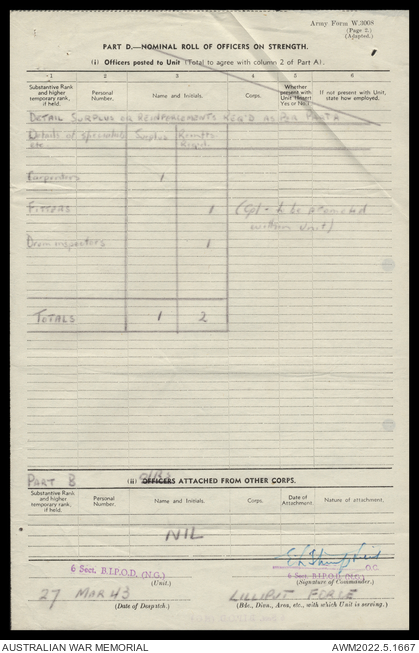 Army Form W.3008
(Page 2.)
(Adapted.)
PART D.—NOMINAL ROLL OF OFFICERS ON STRENGTH.
(i) Officers posted to Unit (Total to agree with column 2 of Part A).
1 2 3 4 5 6
Substantive Rank and higher temporary rank, if held.
Personal Number.
Name and Initials.
Corps.
Whether present with Unit (Insert Yes or No.)
If not present with Unit, state how employed.
DETAIL SURPLUS OR REINFORCEMENTS REQ'D AS PER PART A
Details of specialists etc Surplus Reinfts Requd.
Carpenters 1
FITTERS 1 (Cpl - to be promoted
within Unit)
Draum inspectors 1
TOTALS 1 2
PART B
(ii) O/Rs OFFICERS ATTACHED FROM OTHER CORPS.
Substantive Rank and higher temporary rank, if held.
Personal Number.
Name and Initials.
Corps.
Date of Attachment.
Nature of attachment.
NIL
6 Sect. B.I.P.O.D. (N.G.)
(Unit.)
O.C.
6 Sect. B.I.P.O.D. (N.G.)
(Signature of Commander.)
27 MAR 43
(Date of Despatch.)
LILLIPUT FORCE
(Bde., Divn., Area, etc., with which Unit is serving.)
AUSTRALIAN WAR MEMORIAL
AWM2022.5.1667